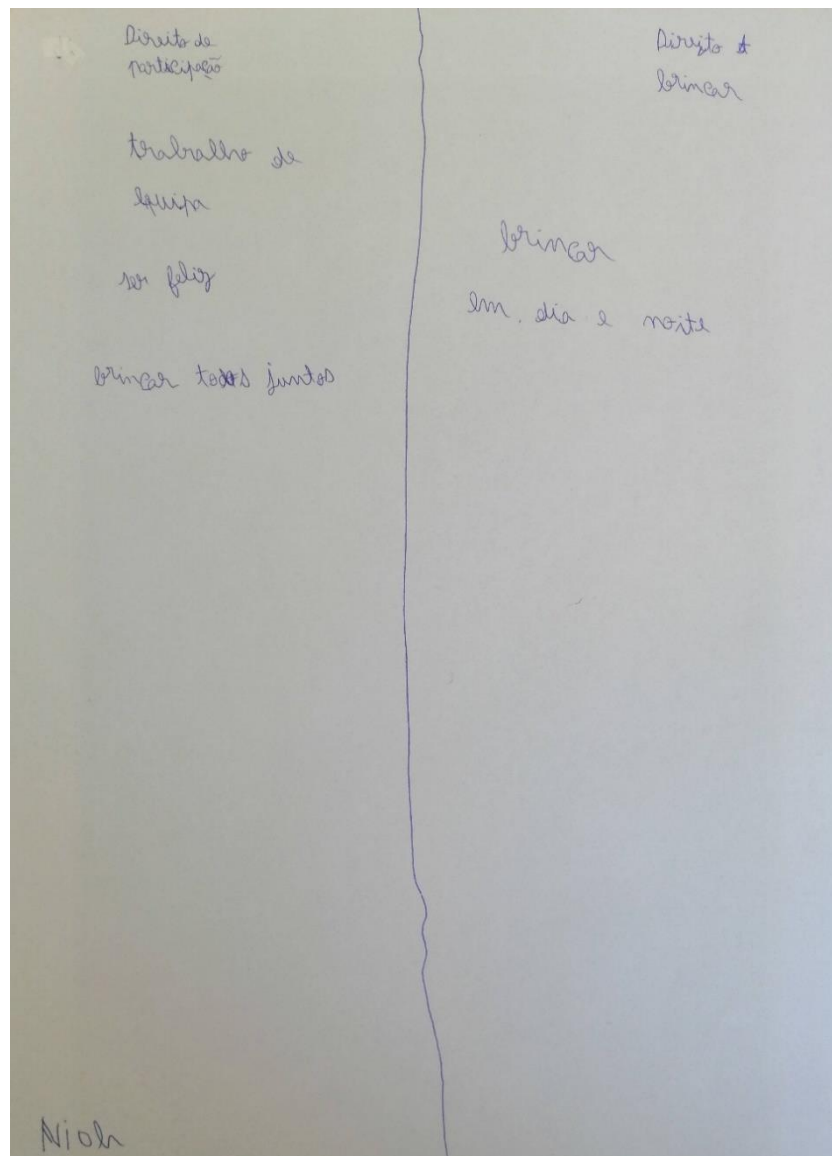 Direito de
participação
trabalho de
equipa
ser feliz
brincar todos juntos
Direito A
brincar
brincar
em. dia e noite